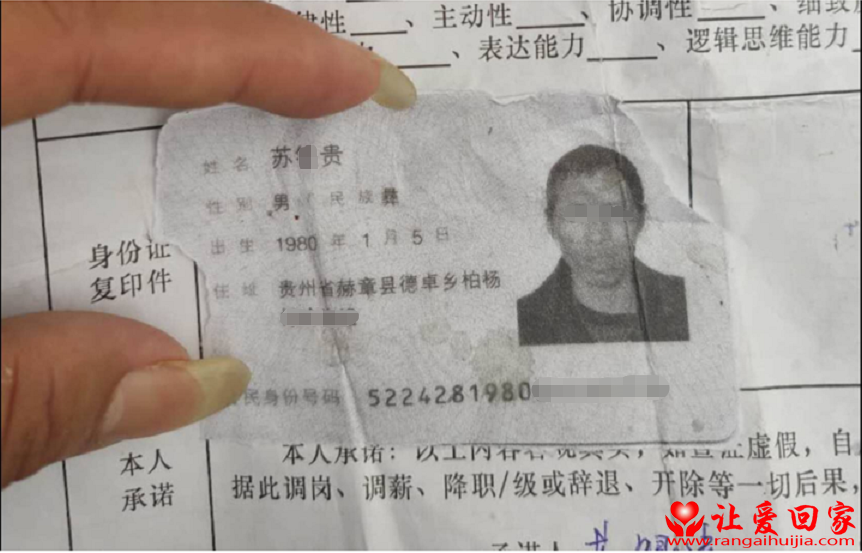 律性 、主动性 、协调性 、细致
、表达能力 、逻辑思维能力
姓名 苏 贵
性别 男 民族彝
出生 1980 年 1 月 5 日
身份证
复印件
住址 贵州省赫章县德卓乡柏杨
民身份号码 5224281980
本人
承诺
本人承诺：以上内容 虚假，自
据此调岗、调薪、降职/级或辞退、开除等一切后果，
承诺人
让爱回家
www.rangaihuijia.com